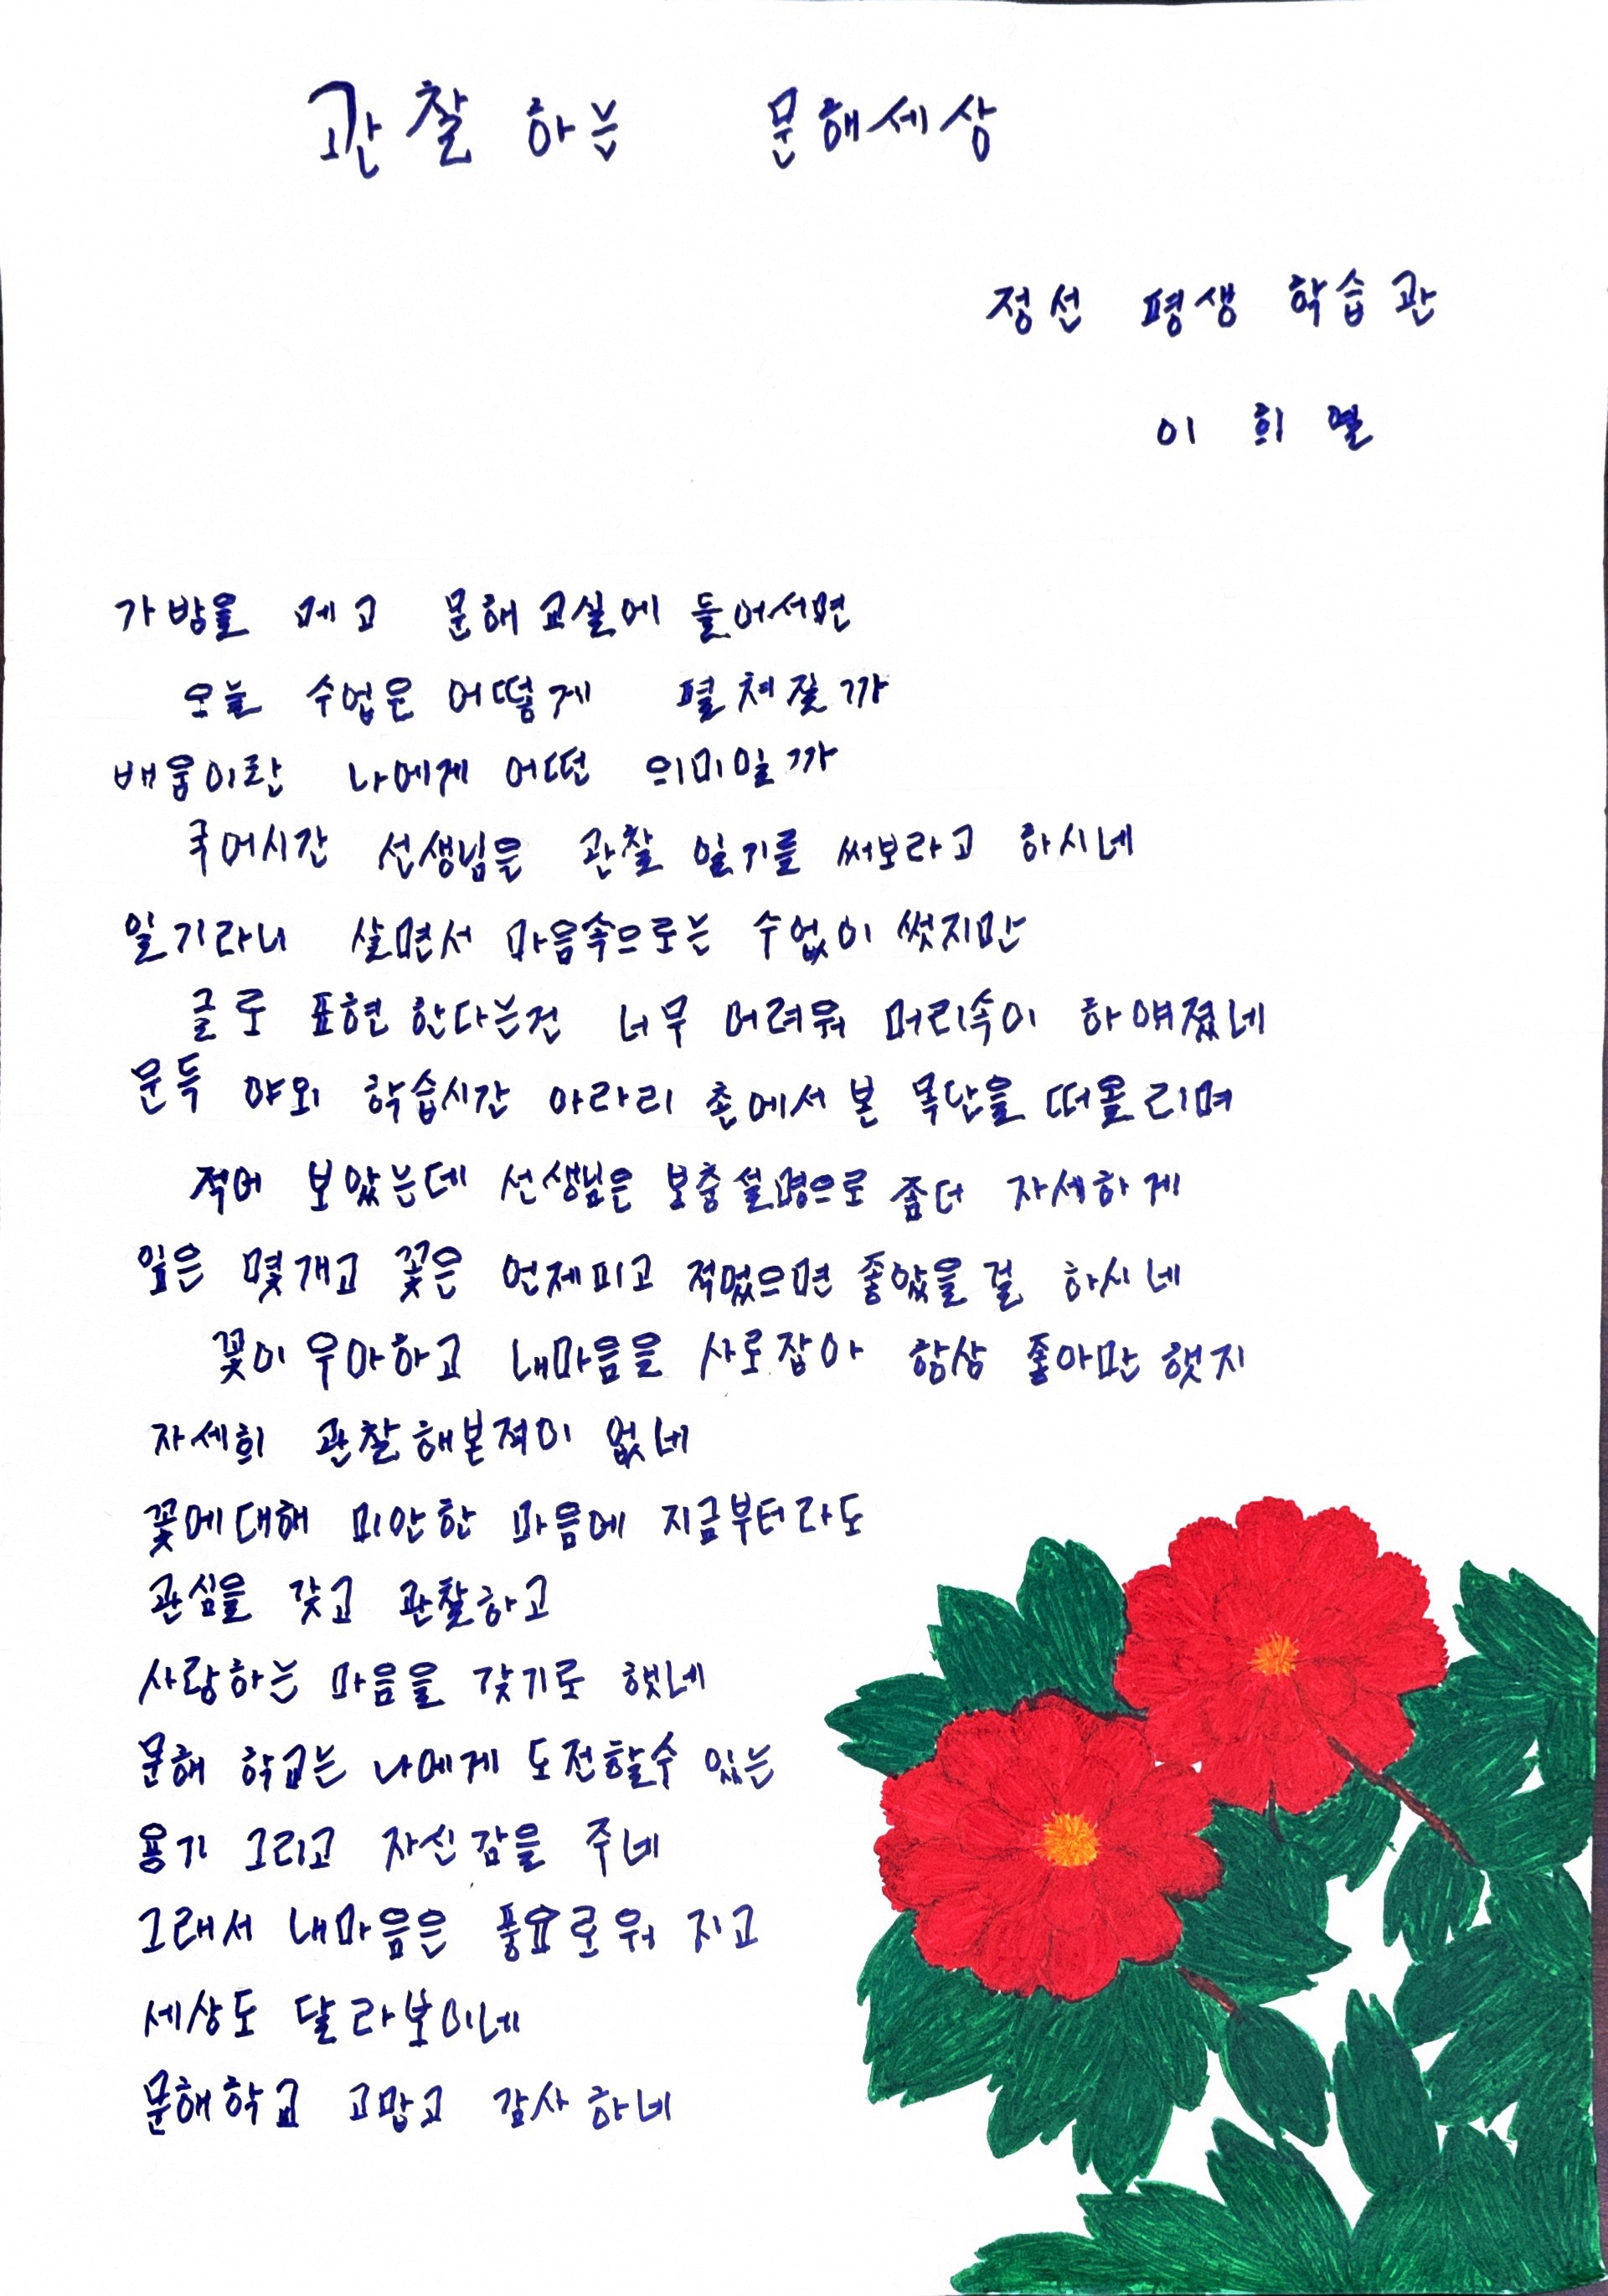 관찰 하는 문해세상
정선 평생 학습관
이 희 열
가방을 메고 문해교실에 들어서면
오늘 수업은 어떻게 펼쳐질까
배움이란 나에게 어떤 의미일까
국어시간 선생님은 관찰 일기를 써보라고 하시네
일기라니 살면서 마음속으로는 수없이 썼지만
글로 표현 한다는건 너무 어려워 머리속이 하얘졌네
문득 야외 학습시간 아라리 촌에서 본 목단을 떠올리며
적어 보았는데 선생님은 보충설명으로 좀더 자세하게
잎은 몇개고 꽃은 언제피고 적었으면 좋았을걸 하시네
꽃이 우아하고 내마음을 사로잡아 항상 좋아만 했지
자세희 관찰해본적이 없네
꽃에대해 미안한 마음에 지금부터라도
관심을 갖고 관찰하고
사랑하는 마음을 갖기로 했네
문해 학교는 나에게 도전할수 있는
용기 그리고 자신감을 주네
그래서 내마음은 풍요로워 지고
세상도 달라보이네
문해학교 고맙고 감사하네